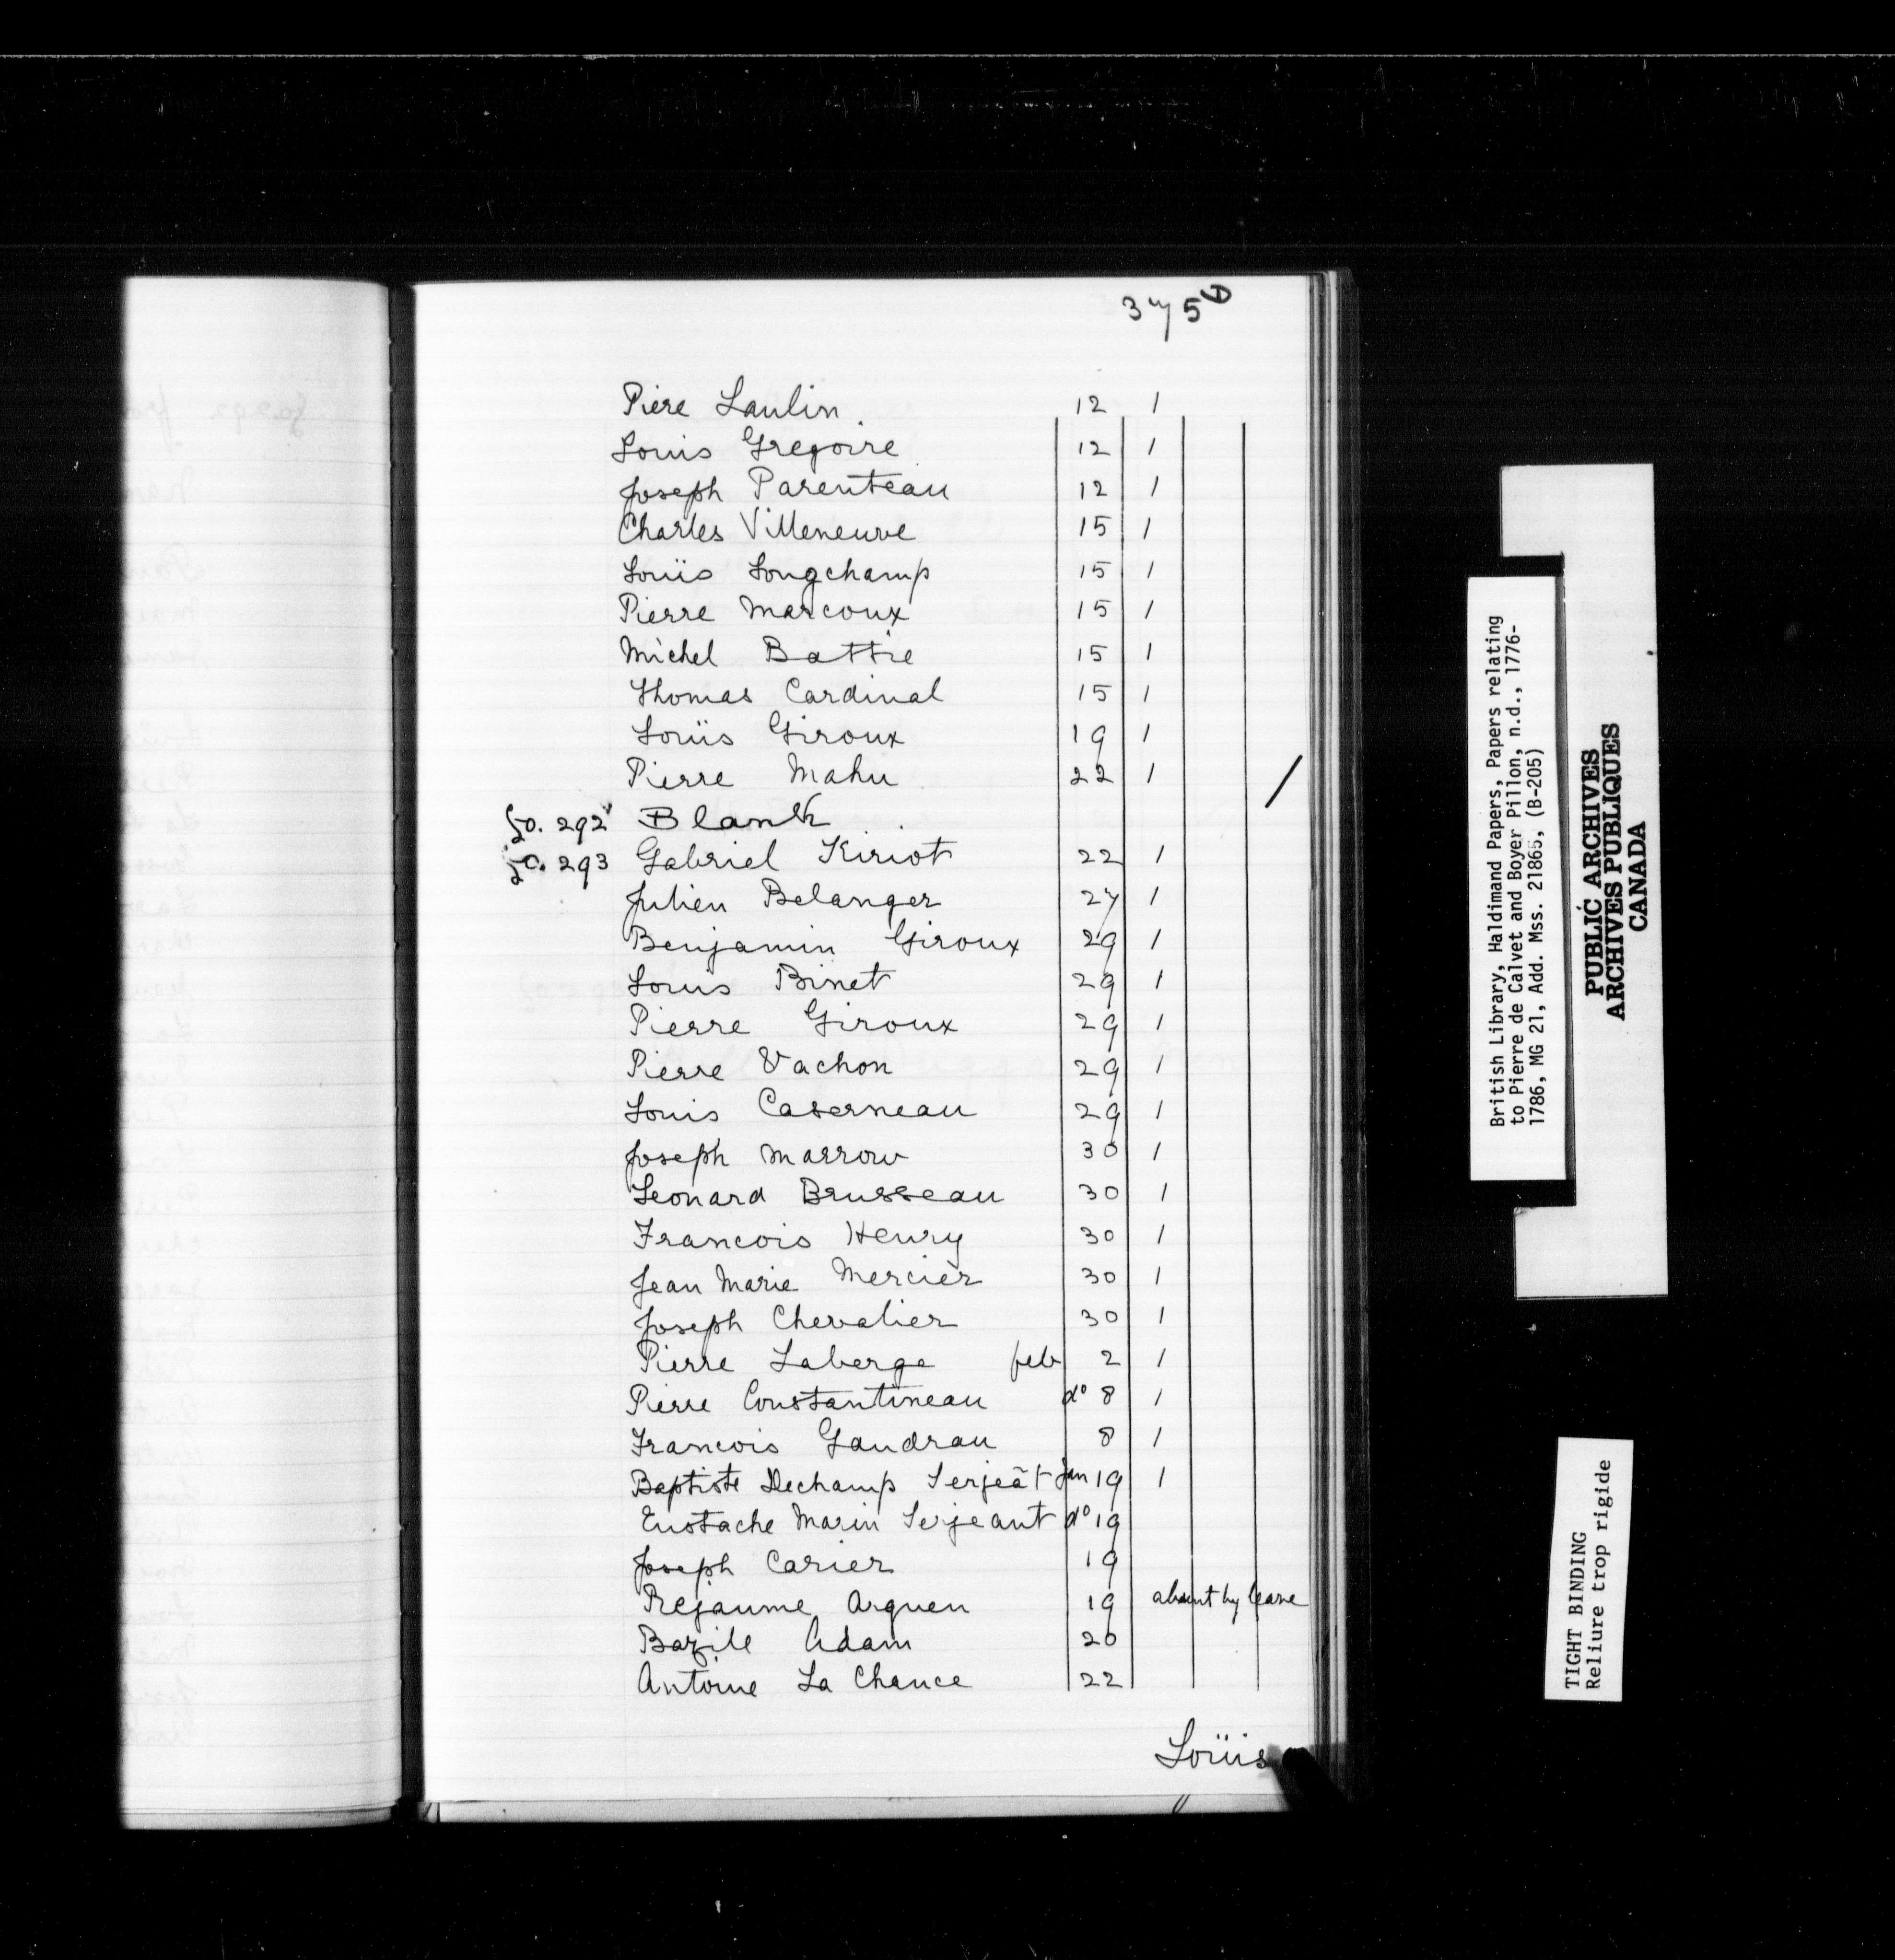 375
Piere Laulin 12 1
Louis Gregoire 12 1
Joseph Parenteau 12 1
Charles Villeneuve 15 1
Loüis Longchamp 15 1
Pierre Marcoux 15 1
Michel Battie 15 1
Thomas Cardinal 15 1
Loüis Giroux 19 1
Pierre Mahu 22 1
fo. 292 Blank
fo. 293 Gabriel Kiriot 22 1
Julien Belanger 27 1
Benjamin Giroux 29 1
Louis Binet 29 1
Pierre Giroux 29 1
Pierre Vachon 29 1
Louis Caserneau 29 1
Joseph Marrow 30 1
Leonard Brusseau 30 1
Francois Henry 30 1
Jean Marie Mercier 30 1
Joseph Chevalier 30 1
Pierre Laberge feb 2 1
Pierre Constantineau do 8 1
Francois Gaudrau 8 1
Baptiste Dechamp Serjeãt Jan 19 1
Eustache Marin Serjeant do 19
Joseph Carier 19
Prejaume Arguen 19 absent by leave
Bazile Adam 20
Antoine La Chance 22
Loüis
British Library, Haldimand Papers, Papers relating
to Pierre de Calvet and Boyer Pillon, n.d., 1776-
1786, MG 21, Add. Mss. 21865, (B-205)
PUBLIC ARCHIVES
ARCHIVES PUBLIQUES
CANADA
TIGHT BINDING
Reliure trop rigide